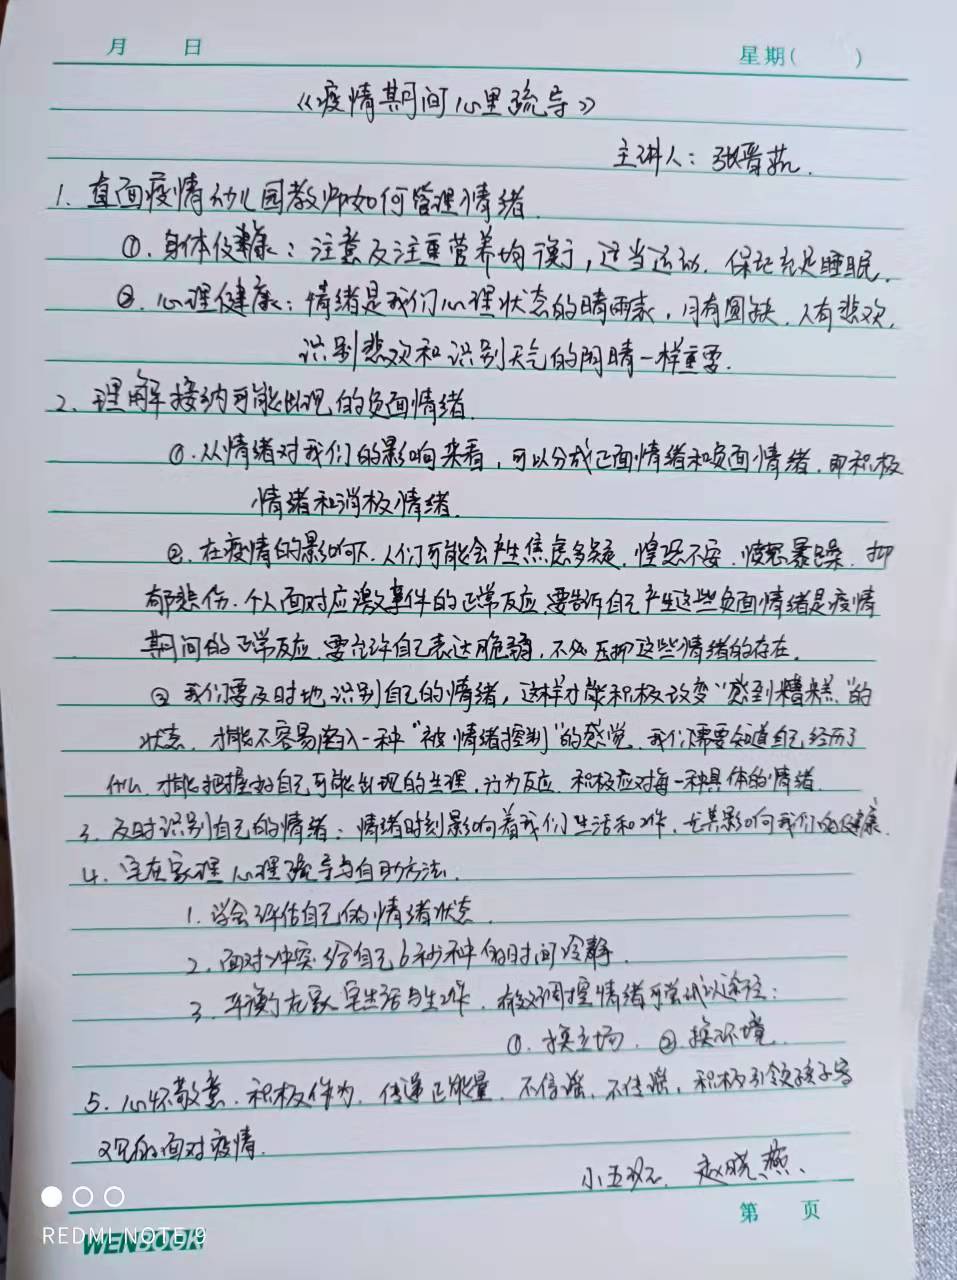 月 日 星期( )
《疫情期间心里疏导》
主讲人：张晋
1. 直面疫情幼儿园教师如何管理情绪.
①. 身体健康：注意及注重营养均衡，适当运动. 保证充足睡眠.
②. 心理健康：情绪是我们心理状态的晴雨表，月有圆缺. 人有悲欢.
识别悲欢和识别天气的阴晴一样重要.
2. 理解接纳可能出现的负面情绪.
①. 从情绪对我们的影响来看，可以分成正面情绪和负面情绪. 即积极
情绪和消极情绪.
②. 在疫情的影响下. 人们可能会产生焦虑多疑. 惶恐不安. 愤怒暴躁. 抑
郁悲伤. 个人面对应激事件的正常反应. 要告诉自己产生这些负面情绪是疫情
期间的正常反应. 要允许自己表达脆弱，不必压抑这些情绪的存在.
③ 我们要及时地识别自己的情绪，这样才能积极改变“感到糟糕”的
状态. 才能不容易陷入一种“被情绪控制”的感觉. 我们需要知道自己经历了
什么. 才能把握好自己可能出现的生理. 行为反应. 积极应对每一种具体的情绪.
3. 及时识别自己的情绪：情绪时刻影响着我们生活和工作. 尤其影响我们的健康.
4. 宅在家理心理疏导与自助方法.
1. 学会评估自己的情绪状态.
2. 面对冲突. 给自己6秒钟的时间冷静.
3. 平衡了在家宅生活与工作. 有效调控情绪可尝试以途径：
①. 换立场. ②. 换环境.
5. 心怀敬意. 积极作为. 传递正能量. 不信谣. 不传谣. 积极引领孩子客
观的面对疫情.
小五班. 赵晓燕.
第 页
REDMI NOTE 9
WENBOOK